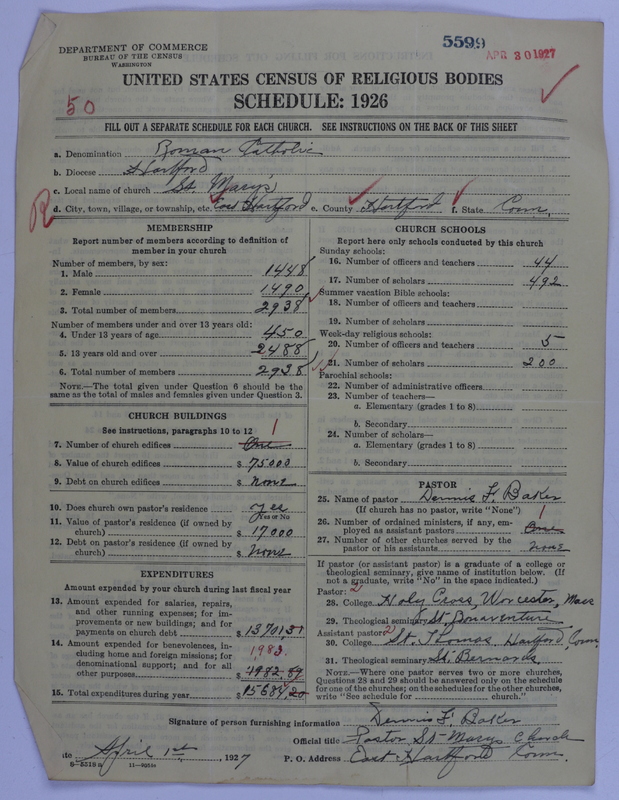 5599
APR 30 1927
DEPARTMENT OF COMMERCE
BUREAU OF THE CENSUS
WASHINGTON
UNITED STATES CENSUS OF RELIGIOUS BODIES
SCHEDULE: 1926
50
FILL OUT A SEPARATE SCHEDULE FOR EACH CHURCH. SEE INSTRUCTIONS ON THE BACK OF THIS SHEET
a. Denomination Roman Catholic
b. Diocese Hartford
c. Local name of church St. Mary's
d. City, town, village, or township, etc. East Hartford e. County Hartford f. State Conn.
MEMBERSHIP
Report number of members according to definition of
member in your church
Number of members, by sex:
1. Male 1448
2. Female 1490
3. Total number of members 2938
Number of members under and over 13 years old:
4. Under 13 years of age 450
5. 13 years old and over 2488
6. Total number of members 2938
NOTE.—The total given under Question 6 should be the
same as the total of males and females given under Question 3.
CHURCH BUILDINGS
See instructions, paragraphs 10 to 12
7. Number of church edifices One 1
8. Value of church edifices $ 75000
9. Debt on church edifices $ None
10. Does church own pastor's residence Yes
Yes or No
11. Value of pastor's residence (if owned by
church) $ 17000
12. Debt on pastor's residence (if owned by
church) $ None
EXPENDITURES
Amount expended by your church during last fiscal year
13. Amount expended for salaries, repairs,
and other running expenses; for im-
provements or new buildings; and for
payments on church debt $ 13701,31
14. Amount expended for benevolences, in-
cluding home and foreign missions; for
denominational support; and for all
other purposes $ 1982.89
1983.
15. Total expenditures during year $ 15684,20
CHURCH SCHOOLS
Report here only schools conducted by this church
Sunday schools:
16. Number of officers and teachers 44
17. Number of scholars 492
Summer vacation Bible schools:
18. Number of officers and teachers
19. Number of scholars
Week-day religious schools:
20. Number of officers and teachers 5
21. Number of scholars 200
Parochial schools:
22. Number of administrative officers
23. Number of teachers—
a. Elementary (grades 1 to 8)
b. Secondary
24. Number of scholars—
a. Elementary (grades 1 to 8)
b. Secondary
PASTOR
25. Name of pastor Dennis F. Baker
(If church has no pastor, write "None")
26. Number of ordained ministers, if any, em-
ployed as assistant pastors One 1
27. Number of other churches served by the
pastor or his assistants None
If pastor (or assistant pastor) is a graduate of a college or
theological seminary, give name of institution below. (If
not a graduate, write "No" in the space indicated.)
Pastor: 2
28. College Holy Cross, Worcester, Mass
29. Theological seminary St. Bonaventure
Assistant pastor: 2
30. College St. Thomas Hartford, Conn.
31. Theological seminary St. Bernards
NOTE.—Where one pastor serves two or more churches,
Questions 28 and 29 should be answered only on the schedule
for one of the churches; on the schedules for the other churches,
write "See schedule for church."
Signature of person furnishing information Dennis F. Baker
Official title Pastor St Marys Church
ate April 1st, 1927 P. O. Address East Hartford Conn.